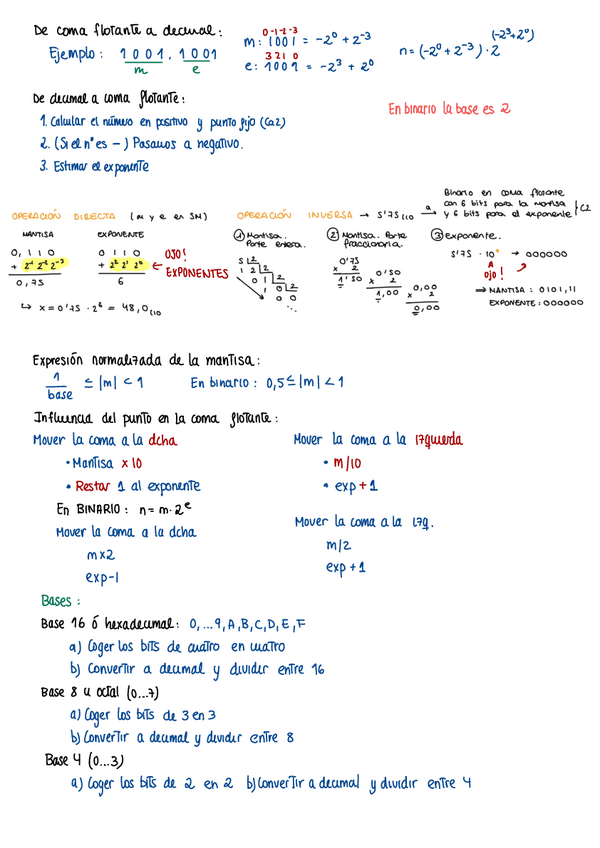 De coma flotante a decimal:
Ejemplo: 1001, 1001
m e
0 -1 -2 -3
m: 1001 = -2⁰ + 2⁻³
3 2 1 0
e: 1001 = -2³ + 2⁰
n = (-2⁰ + 2⁻³) · 2^(-2³+2⁰)
De decimal a coma flotante:
1. Calcular el número en positivo y punto fijo (Ca2)
2. (Si el nº es -) Pasamos a negativo.
3. Estimar el exponente
En binario la base es 2
OPERACIÓN DIRECTA (m y e en SM)
MANTISA EXPONENTE
0, 1 1 0 0 1 1 0
+ 2⁻¹ 2⁻² 2⁻³ + 2² 2¹ 2⁰
0,75 6
← OJO! EXPONENTES
↳ x = 0'75 · 2⁶ = 48,0₍₁₀
OPERACIÓN INVERSA → 5'75₍₁₀ a → Binario en coma flotante con 6 bits para la mantisa y 6 bits para el exponente } C2
① Mantisa. Parte entera.
5 |2
1 2 |2
0 1 |2
1 0 |2
0 0
...
② Mantisa. Parte fraccionaria.
0'75
x 2
1'50
0'50
x 2
1,00
0,00
x 2
0,00
③ Exponente.
5'75 · 10⁰ → 000000
OJO!
⇒ MANTISA: 0101,11
EXPONENTE: 000000
Expresión normalizada de la mantisa:
1/base ≤ |m| < 1 En binario: 0,5 ≤ |m| < 1
Influencia del punto en la coma flotante:
Mover la coma a la dcha
• Mantisa x 10
• Restar 1 al exponente
En BINARIO: n = m · 2ᵉ
Mover la coma a la dcha
m x 2
exp - 1
Mover la coma a la izquierda
• m/10
• exp + 1
Mover la coma a la izq.
m/2
exp + 1
Bases:
Base 16 ó hexadecimal: 0, ...9, A, B, C, D, E, F
a) Coger los bits de cuatro en cuatro
b) Convertir a decimal y dividir entre 16
Base 8 u octal (0...7)
a) Coger los bits de 3 en 3
b) Convertir a decimal y dividir entre 8
Base 4 (0...3)
a) Coger los bits de 2 en 2 b) Convertir a decimal y dividir entre 4